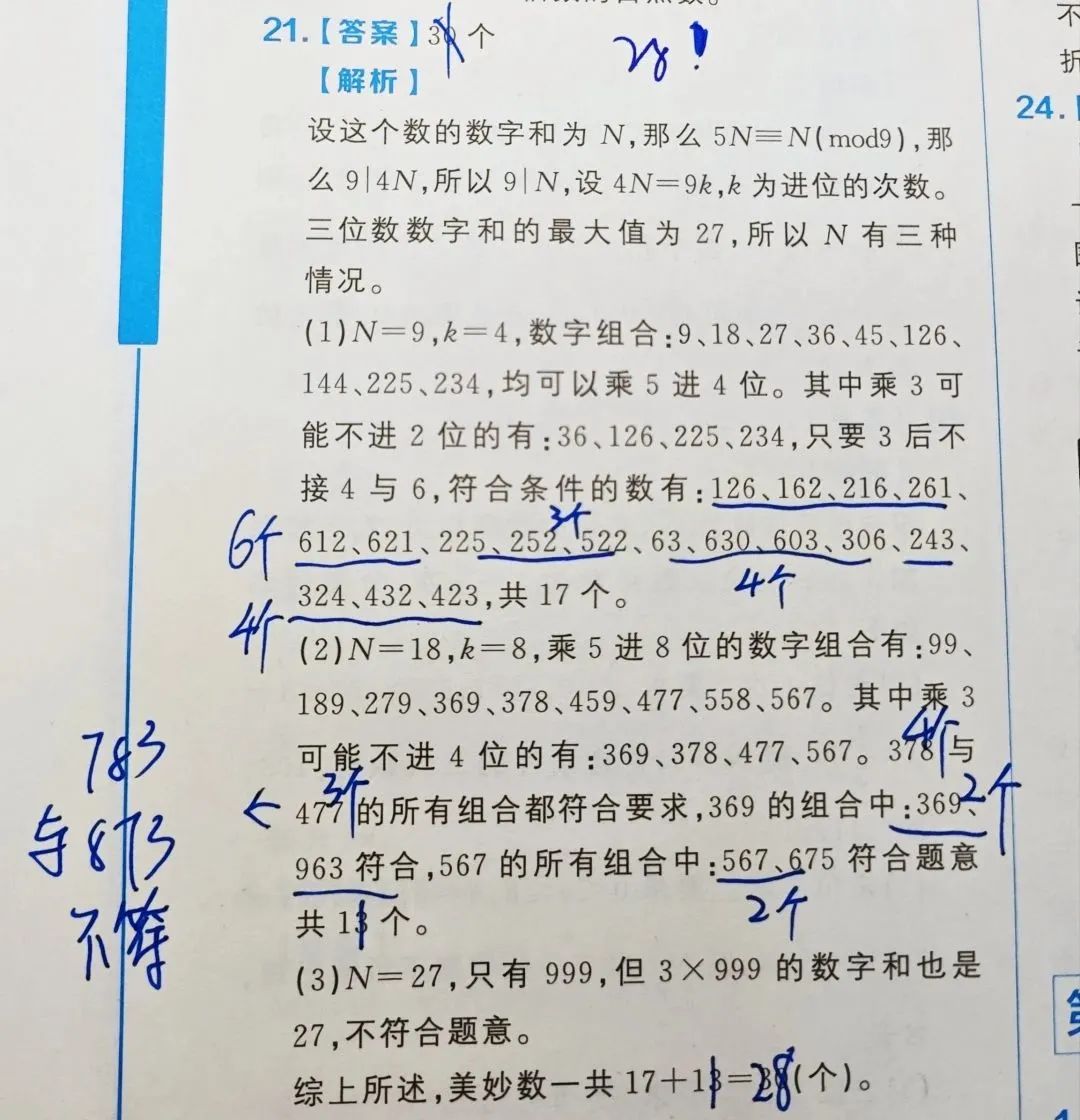 21.【答案】30个
28!
【解析】
设这个数的数字和为 N,那么 5N≡N(mod9),那
么 9|4N,所以 9|N,设 4N=9k,k 为进位的次数。
三位数数字和的最大值为 27,所以 N 有三种
情况。
(1)N=9,k=4,数字组合:9、18、27、36、45、126、
144、225、234,均可以乘 5 进 4 位。其中乘 3 可
能不进 2 位的有:36、126、225、234,只要 3 后不
接 4 与 6,符合条件的数有:126、162、216、261、
3个
6个
612、621、225、252、522、63、630、603、306、243、
4个
4个
324、432、423,共 17 个。
(2)N=18,k=8,乘 5 进 8 位的数字组合有:99、
189、279、369、378、459、477、558、567。其中乘 3
4个
783
可能不进 4 位的有:369、378、477、567。378 与
3个
2个
与873
←
477 的所有组合都符合要求,369 的组合中:369、
963 符合,567 的所有组合中:567、675 符合题意
2个
不符
共 13 个。
(3)N=27,只有 999,但 3×999 的数字和也是
27,不符合题意。
综上所述,美妙数一共 17+13=30(个)。
28
24.
不
折